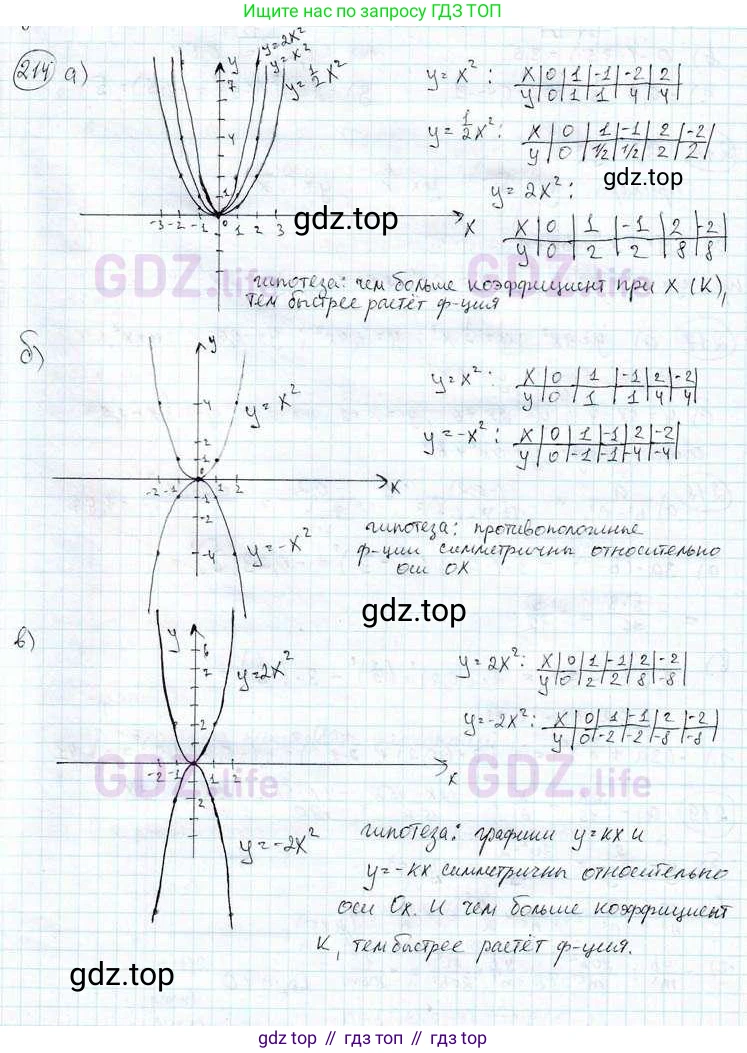 Ищите нас по запросу ГДЗ ТОП
214 а)
y=2x²
y=x²
y=½x²
y
7
4
1
-3 -2 -1 0 1 2 3
x
y=x²: x|0|1|-1|-2|2
y|0|1|1|4|4
y=½x²: x|0|1|-1|2|-2
y|0|1/2|1/2|2|2
gdz.top
y=2x²:
x|0|1|-1|2|-2
y|0|2|2|8|8
gdz.top
GDZ.life GDZ.life
гипотеза: чем больше коэффициент при x (k),
тем быстрее растёт ф-ция
б)
y
y=x²
4
2
1
-2 -1 0 1 2
x
-1
-2
-4
y=-x²
y=x²: x|0|1|-1|2|-2
y|0|1|1|4|4
y=-x²: x|0|1|-1|2|-2
y|0|-1|-1|-4|-4
гипотеза: противоположные
ф-ции симметричны относительно
оси OX
gdz.top
в)
y
6
7
y=2x²
2
-2 -1 1 2
x
2
y=-2x²
y=2x²: x|0|1|-1|2|-2
y|0|2|2|8|-8
y=-2x²: x|0|1|-1|2|-2
y|0|-2|-2|-8|-8
GDZ.life GDZ.life
гипотеза: графики y=kx и
y=-kx симметричны относительно
оси Ox. И чем больше коэффициент
k, тем быстрее растёт ф-ция.
gdz.top
gdz top // гдз топ // gdz top